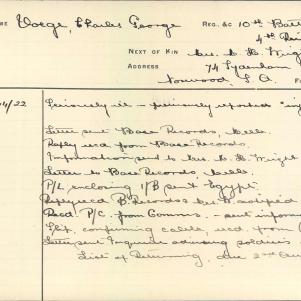 RE Voege, Charles George REG. &C 10th Batt
4th Rein
NEXT OF KIN Mrs. C. H. Wrig
ADDRESS 74 Sydenham
Norwood, S.A. F
4/22 Seriously ill - previously reported "in
Letter sent Base Records, Melb.
Reply rec'd from Base Records.
Information sent to Mrs. C. H. Wright
Letter to Base Records, Melb.
P/L enclosing 1/B sent Egypt.
Reply rec'd B. Records
Recd P/C. from Comms. - sent inform
Slip, confirming cable, rec'd. from
Letter sent Inquirer advising soldier
List of Returning, due 2nd Au